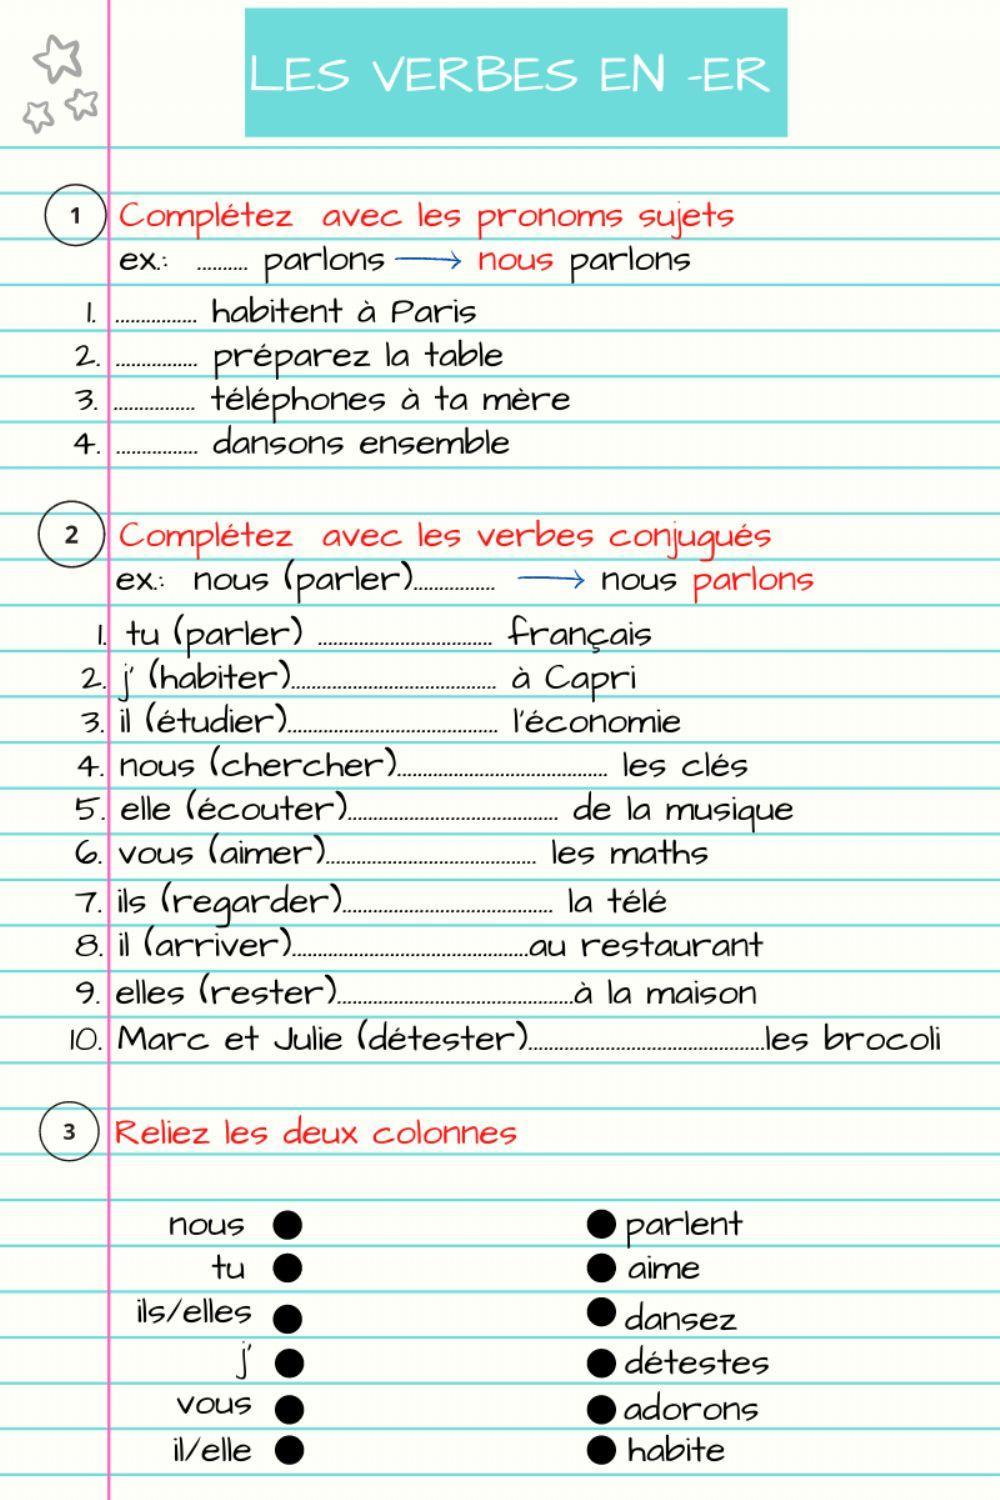 LES VERBES EN -ER
1 Complétez avec les pronoms sujets
ex.: .......... parlons → nous parlons
1. ................ habitent à Paris
2. ................ préparez la table
3. ................ téléphones à ta mère
4. ................ dansons ensemble
2 Complétez avec les verbes conjugués
ex.: nous (parler)................ → nous parlons
1. tu (parler) .................................. français
2. j' (habiter)........................................ à Capri
3. il (étudier)......................................... l'économie
4. nous (chercher)......................................... les clés
5. elle (écouter)......................................... de la musique
6. vous (aimer)......................................... les maths
7. ils (regarder)......................................... la télé
8. il (arriver)..............................................au restaurant
9. elles (rester)..............................................à la maison
10. Marc et Julie (détester)..............................................les brocoli
3 Reliez les deux colonnes
nous ● ● parlent
tu ● ● aime
ils/elles ● ● dansez
j' ● ● détestes
vous ● ● adorons
il/elle ● ● habite